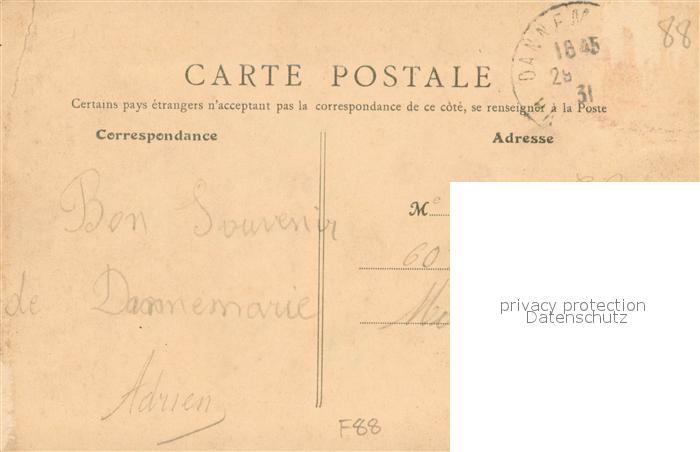 DANNEM
18 45
29
31
88
CARTE POSTALE
Certains pays étrangers n'acceptant pas la correspondance de ce côté, se renseigner à la Poste
Correspondance
Adresse
Bon Souvenir
de Dannemarie
Adrien
Me
60
privacy protection
Datenschutz
F88